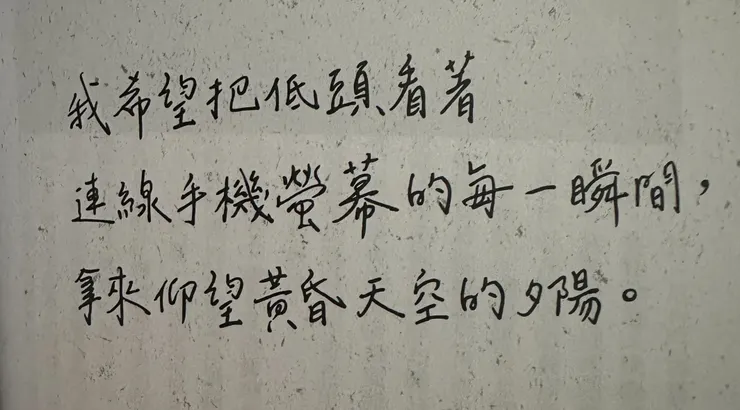 我希望把低頭看著
連線手機螢幕的每一瞬間，
拿來仰望黃昏天空的夕陽。